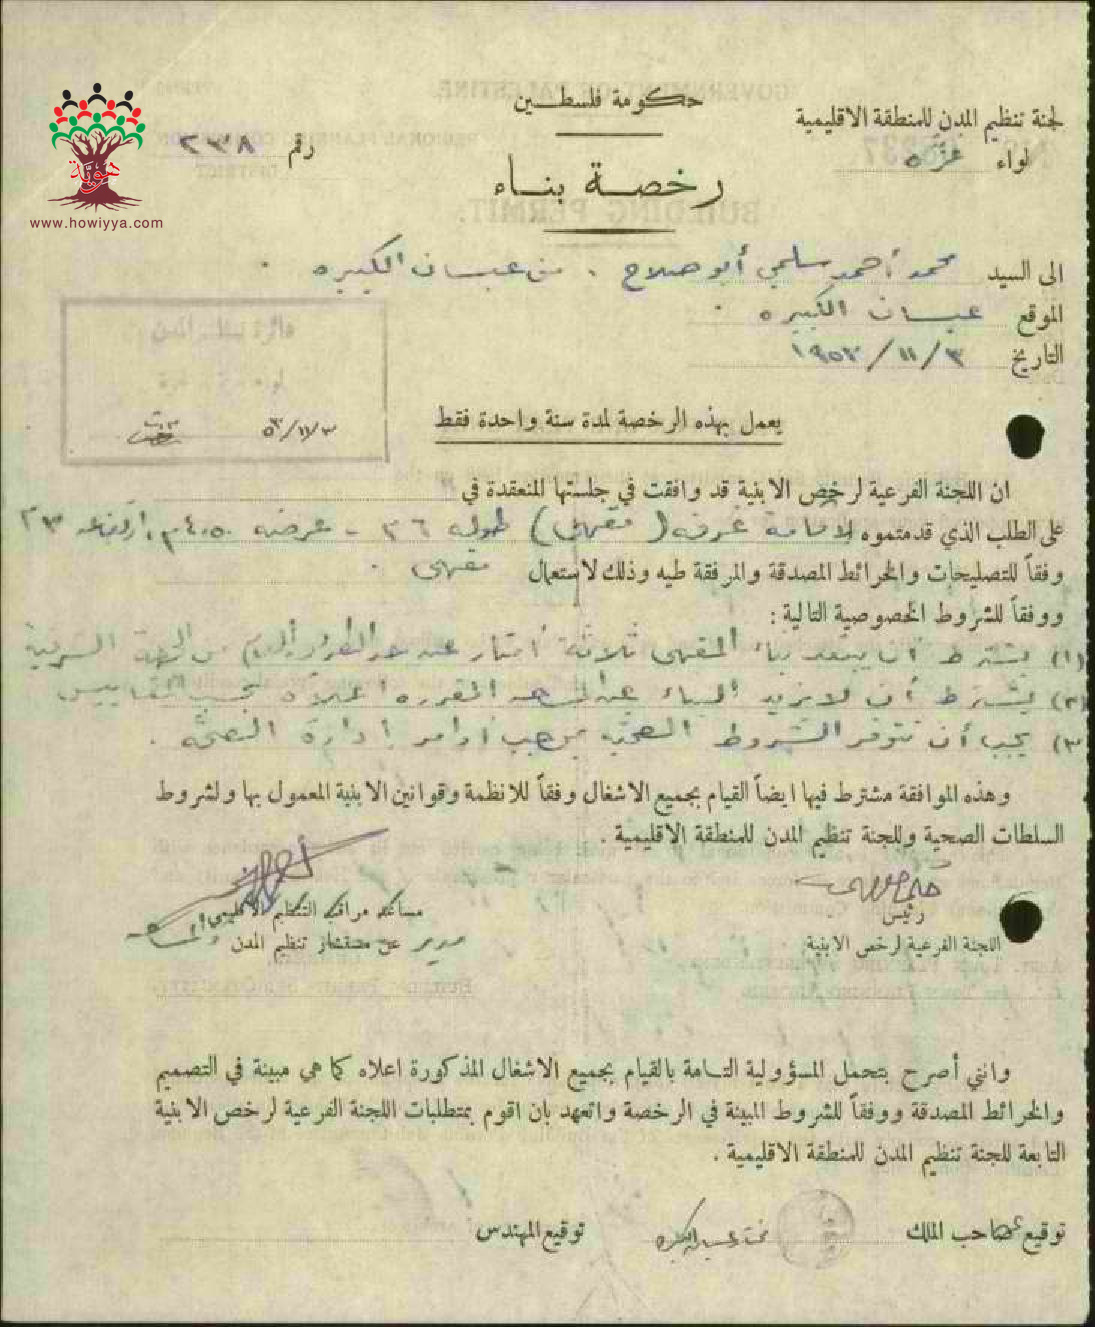 حكومة فلسطين
لجنة تنظيم المدن للمنطقة الاقليمية
لواء غزة
رقم ٢٣٨
هوية
www.howiyya.com
رخصة بناء
الى السيد محمد أحمد سلمي أبو صلاح . من عبسان الكبيره .
الموقع عبسان الكبيره .
التاريخ ٣ / ١١ / ١٩٥٣
دائرة تنظيم المدن
لواء غزة
٣/١١/٥٣
يعمل بهذه الرخصة لمدة سنة واحدة فقط
ان اللجنة الفرعية لرخص الابنية قد وافقت في جلستها المنعقدة في
على الطلب الذي قدمتموه لاقامة غرفه ( مقهى ) طوله ٣٦ - عرضه ٤،٥٠ م،
وفقاً للتصليحات والخرائط المصدقة والمرفقة طيه وذلك لاستعمال مقهى .
ووفقاً للشروط الخصوصية التالية :
(١) يشترط أن يبعد بناء المقهى ثلاثة أمتار عن حد الطريق من الجهة الشرقية
(٢) يشترط أن لا يزيد البناء عن المقرره اعلاه بحسب المقاييس
(٣) يجب أن تتوفر الشروط الصحيه بموجب أوامر إدارة الصحة .
وهذه الموافقة مشترط فيها ايضاً القيام بجميع الاشغال وفقاً للانظمة وقوانين الابنية المعمول بها ولشروط
السلطات الصحية وللجنة تنظيم المدن للمنطقة الاقليمية .
رئيس
اللجنة الفرعية لرخص الابنية
مساعد مراقب التنظيم الاقليمي
مدير عن مستشار تنظيم المدن
وانني أصرح بتحمل المسؤولية التامة بالقيام بجميع الاشغال المذكورة اعلاه كما هي مبينة في التصميم
والخرائط المصدقة ووفقاً للشروط المبينة في الرخصة واتعهد بان اقوم بمتطلبات اللجنة الفرعية لرخص الابنية
التابعة للجنة تنظيم المدن للمنطقة الاقليمية .
توقيع صاحب الملك
توقيع المهندس